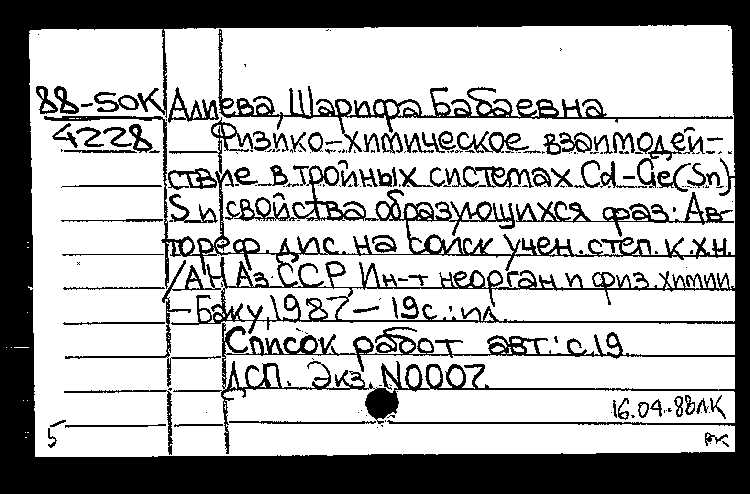 88-50К Алиева, Шарифа Бабаевна
4228 Физико-химическое взаимодей-
ствие в тройных системах Cd-Ge(Sn)-
S и свойства образующихся фаз: Ав-
тореф. дис. на соиск учен. степ. к.х.н.
/АН Аз.ССР, Ин-т неорган. и физ. химии.
-Баку, 1987 - 19с.: ил.
Список работ авт.: с.19.
ДСП. Экз. N0007.
16.04.88 ЛК
5